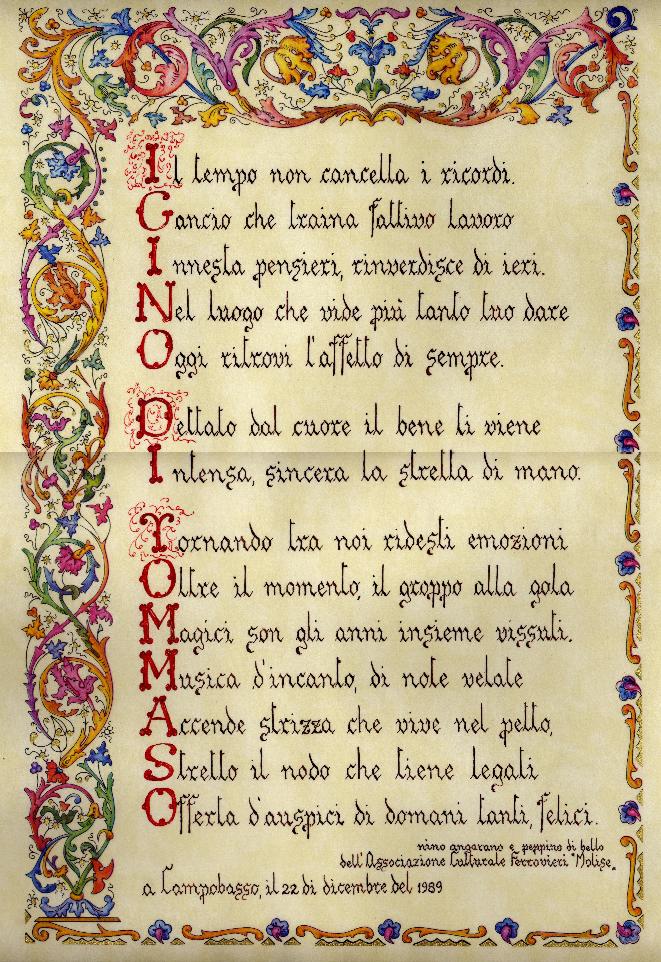 Il tempo non cancella i ricordi.
Gancio che traina fattivo lavoro
Innesta pensieri, rinverdisce di ieri.
Nel luogo che vide più tanto tuo dare
Oggi ritrovi l'affetto di sempre.
Dettato dal cuore il bene ti viene
Intensa, sincera la stretta di mano.
Tornando tra noi ridesti emozioni
Oltre il momento, il groppo alla gola
Magici son gli anni insieme vissuti.
Musica d'incanto, di note velate
Accende strizza che vive nel petto,
Stretto il nodo che tiene legati
Offerta d'auspici di domani tanti, felici.
nino angarano e peppino di bello
dell'Associazione Culturale Ferrovieri "Molise"
a Campobasso, il 22 di dicembre del 1989